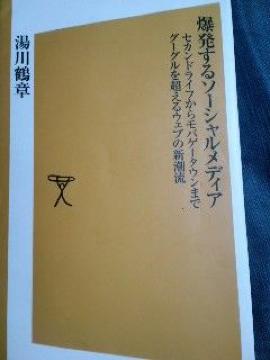 爆発するソーシャルメディア
セカンドライフからモバゲータウンまで
グーグルを超えるウェブの新潮流
湯川鶴章